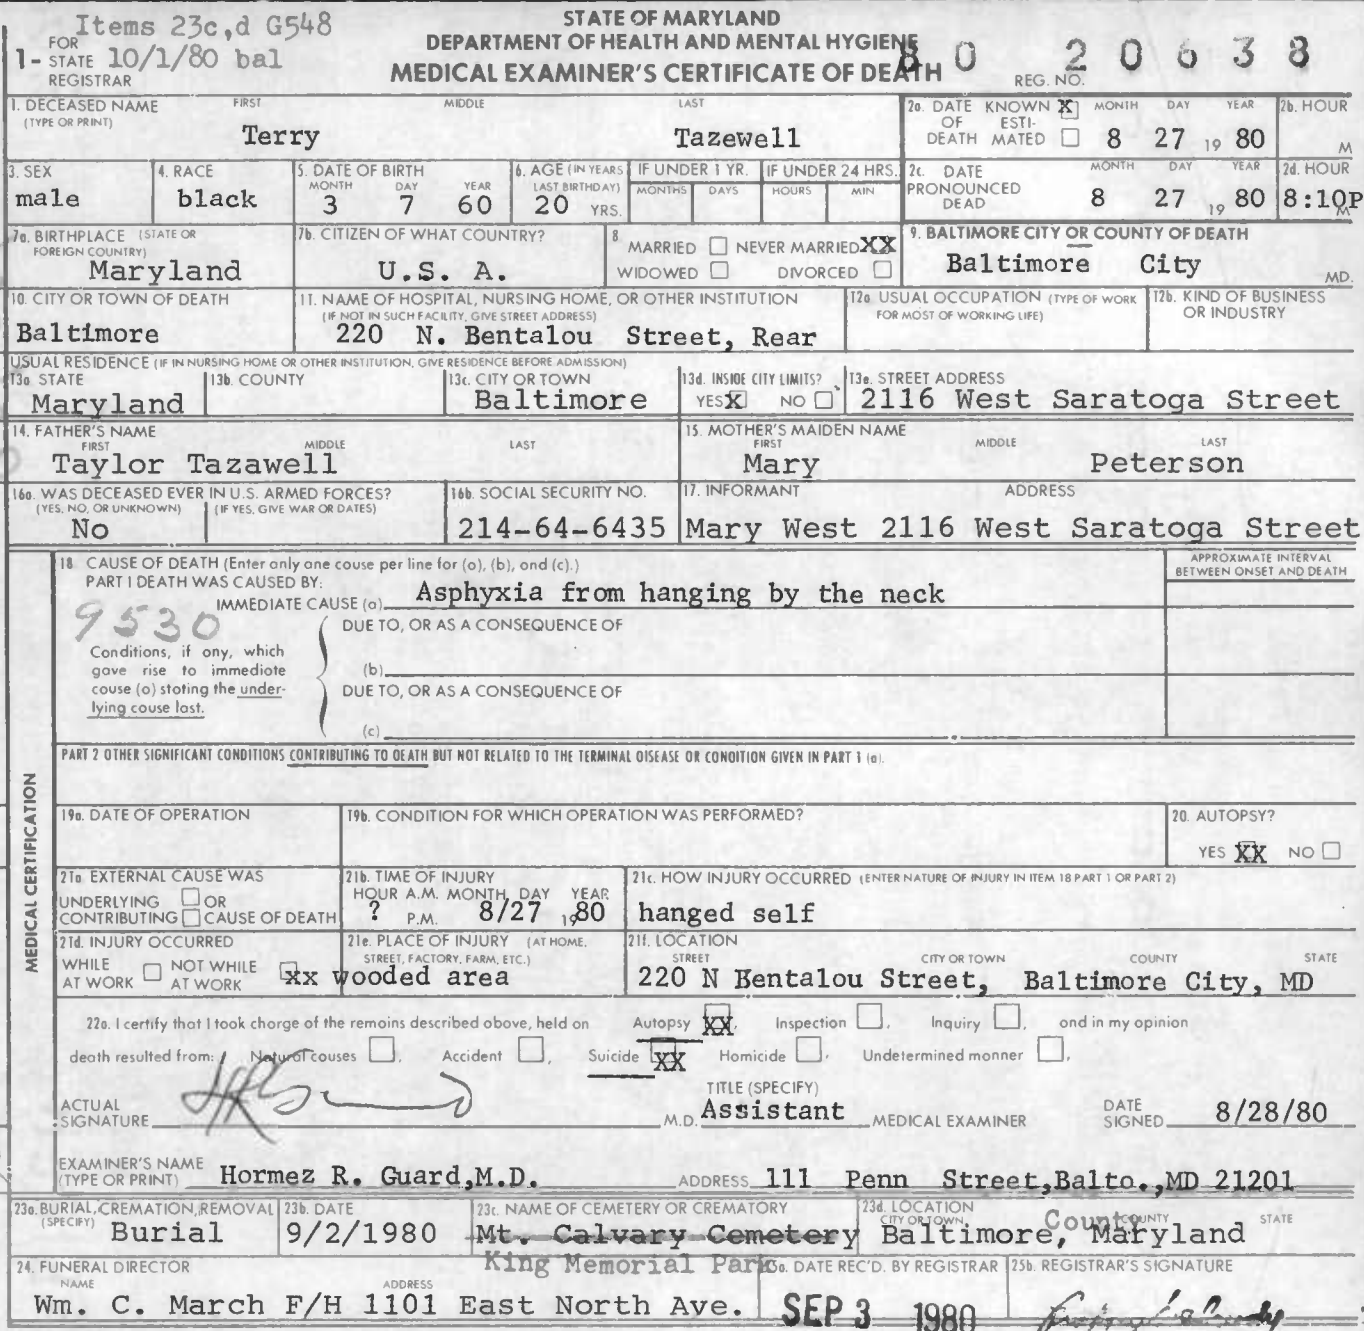 Items 23c,d G548
STATE OF MARYLAND
1- FOR STATE REGISTRAR 10/1/80 bal
DEPARTMENT OF HEALTH AND MENTAL HYGIENE
MEDICAL EXAMINER'S CERTIFICATE OF DEATH
REG. NO. 80 20638
1. DECEASED NAME (TYPE OR PRINT) FIRST MIDDLE LAST
Terry Tazewell
2a. DATE OF DEATH KNOWN X ESTIMATED MONTH DAY YEAR 8 27 19 80
2b. HOUR M
3. SEX male
4. RACE black
5. DATE OF BIRTH MONTH DAY YEAR 3 7 60
6. AGE (IN YEARS LAST BIRTHDAY) 20 YRS.
IF UNDER 1 YR. MONTHS DAYS
IF UNDER 24 HRS. HOURS MIN
2c. DATE PRONOUNCED DEAD MONTH DAY YEAR 8 27 19 80
2d. HOUR 8:10P M
7a. BIRTHPLACE (STATE OR FOREIGN COUNTRY) Maryland
7b. CITIZEN OF WHAT COUNTRY? U.S. A.
8 MARRIED NEVER MARRIED XX
WIDOWED DIVORCED
9. BALTIMORE CITY OR COUNTY OF DEATH
Baltimore City MD.
10. CITY OR TOWN OF DEATH
Baltimore
11. NAME OF HOSPITAL, NURSING HOME, OR OTHER INSTITUTION
(IF NOT IN SUCH FACILITY, GIVE STREET ADDRESS)
220 N. Bentalou Street, Rear
12a. USUAL OCCUPATION (TYPE OF WORK FOR MOST OF WORKING LIFE)
12b. KIND OF BUSINESS OR INDUSTRY
USUAL RESIDENCE (IF IN NURSING HOME OR OTHER INSTITUTION, GIVE RESIDENCE BEFORE ADMISSION)
13a STATE Maryland
13b. COUNTY
13c. CITY OR TOWN Baltimore
13d. INSIDE CITY LIMITS? YES X NO
13e. STREET ADDRESS
2116 West Saratoga Street
14. FATHER'S NAME FIRST MIDDLE LAST
Taylor Tazawell
15. MOTHER'S MAIDEN NAME FIRST MIDDLE LAST
Mary Peterson
16a. WAS DECEASED EVER IN U.S. ARMED FORCES?
(YES, NO, OR UNKNOWN) (IF YES, GIVE WAR OR DATES)
No
16b. SOCIAL SECURITY NO.
214-64-6435
17. INFORMANT ADDRESS
Mary West 2116 West Saratoga Street
MEDICAL CERTIFICATION
18 CAUSE OF DEATH (Enter only one cause per line for (a), (b), and (c).)
APPROXIMATE INTERVAL BETWEEN ONSET AND DEATH
PART I DEATH WAS CAUSED BY:
IMMEDIATE CAUSE (a) Asphyxia from hanging by the neck
9530
DUE TO, OR AS A CONSEQUENCE OF
Conditions, if any, which gave rise to immediate cause (a) stating the underlying cause last.
(b)
DUE TO, OR AS A CONSEQUENCE OF
(c)
PART 2 OTHER SIGNIFICANT CONDITIONS CONTRIBUTING TO DEATH BUT NOT RELATED TO THE TERMINAL DISEASE OR CONDITION GIVEN IN PART 1 (a).
19a. DATE OF OPERATION
19b. CONDITION FOR WHICH OPERATION WAS PERFORMED?
20. AUTOPSY?
YES XX NO
21a. EXTERNAL CAUSE WAS
UNDERLYING OR
CONTRIBUTING CAUSE OF DEATH
21b. TIME OF INJURY
HOUR A.M. MONTH, DAY YEAR
? P.M. 8/27 1980
21c. HOW INJURY OCCURRED (ENTER NATURE OF INJURY IN ITEM 18 PART 1 OR PART 2)
hanged self
21d. INJURY OCCURRED
WHILE AT WORK NOT WHILE AT WORK xx
21e. PLACE OF INJURY (AT HOME, STREET, FACTORY, FARM, ETC.)
wooded area
21f. LOCATION
STREET CITY OR TOWN COUNTY STATE
220 N Bentalou Street, Baltimore City, MD
22a. I certify that I took charge of the remains described above, held on Autopsy XX, Inspection, Inquiry, and in my opinion
death resulted from: Natural causes, Accident, Suicide XX Homicide, Undetermined manner,
ACTUAL SIGNATURE M.D.
TITLE (SPECIFY) Assistant MEDICAL EXAMINER
DATE SIGNED 8/28/80
EXAMINER'S NAME (TYPE OR PRINT) Hormez R. Guard,M.D.
ADDRESS 111 Penn Street,Balto.,MD 21201
23a. BURIAL, CREMATION, REMOVAL (SPECIFY) Burial
23b. DATE 9/2/1980
23c. NAME OF CEMETERY OR CREMATORY
Mt. Calvary Cemetery
King Memorial Park
23d. LOCATION CITY OR TOWN COUNTY STATE
County
Baltimore, Maryland
24. FUNERAL DIRECTOR
NAME ADDRESS
Wm. C. March F/H 1101 East North Ave.
25a. DATE REC'D. BY REGISTRAR
SEP 3 1980
25b. REGISTRAR'S SIGNATURE